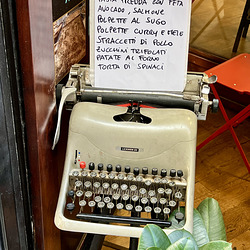 PASTA FREDDA CON FETA
AVOCADO, SALMONE
POLPETTE AL SUGO
POLPETTE CURRY E MELE
STRACCETTI DI POLLO
ZUCCHINI TRIFOLATI
PATATE AL FORNO
TORTA DI SPINACI